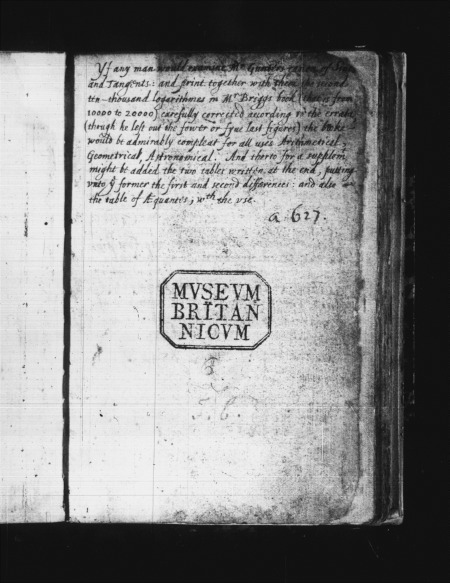 Yf any man would reprint Mr Gunters canon of Sines
and Tangents: and print together with them the second
ten-thousand logarithmes in Mr Briggs book (that is from
10000 to 20000) carefully corrected according to the errata
(though he left out the fower or fyue last figures) the booke
would be admirably compleat for all uses Arithmetical,
Geometrical, Astronomical. And therto for a supplem.
might be added the two tables written at the end, putting
vnto ye former the first and second differences: and also
the table of Æquantes, wth the vse.
a 627.
MVSEVM
BRITAN
NICVM